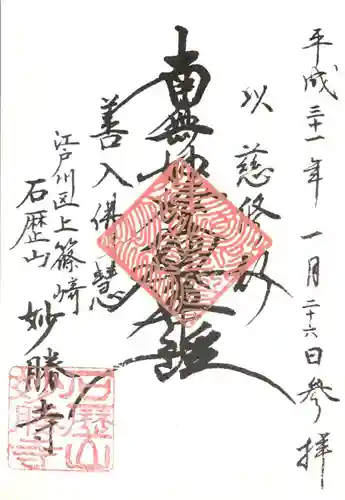 平成三十一年一月二十六日参拝
以慈修身
南無妙法蓮華経
善入佛慧
江戸川区上篠崎
石歴山
妙勝寺